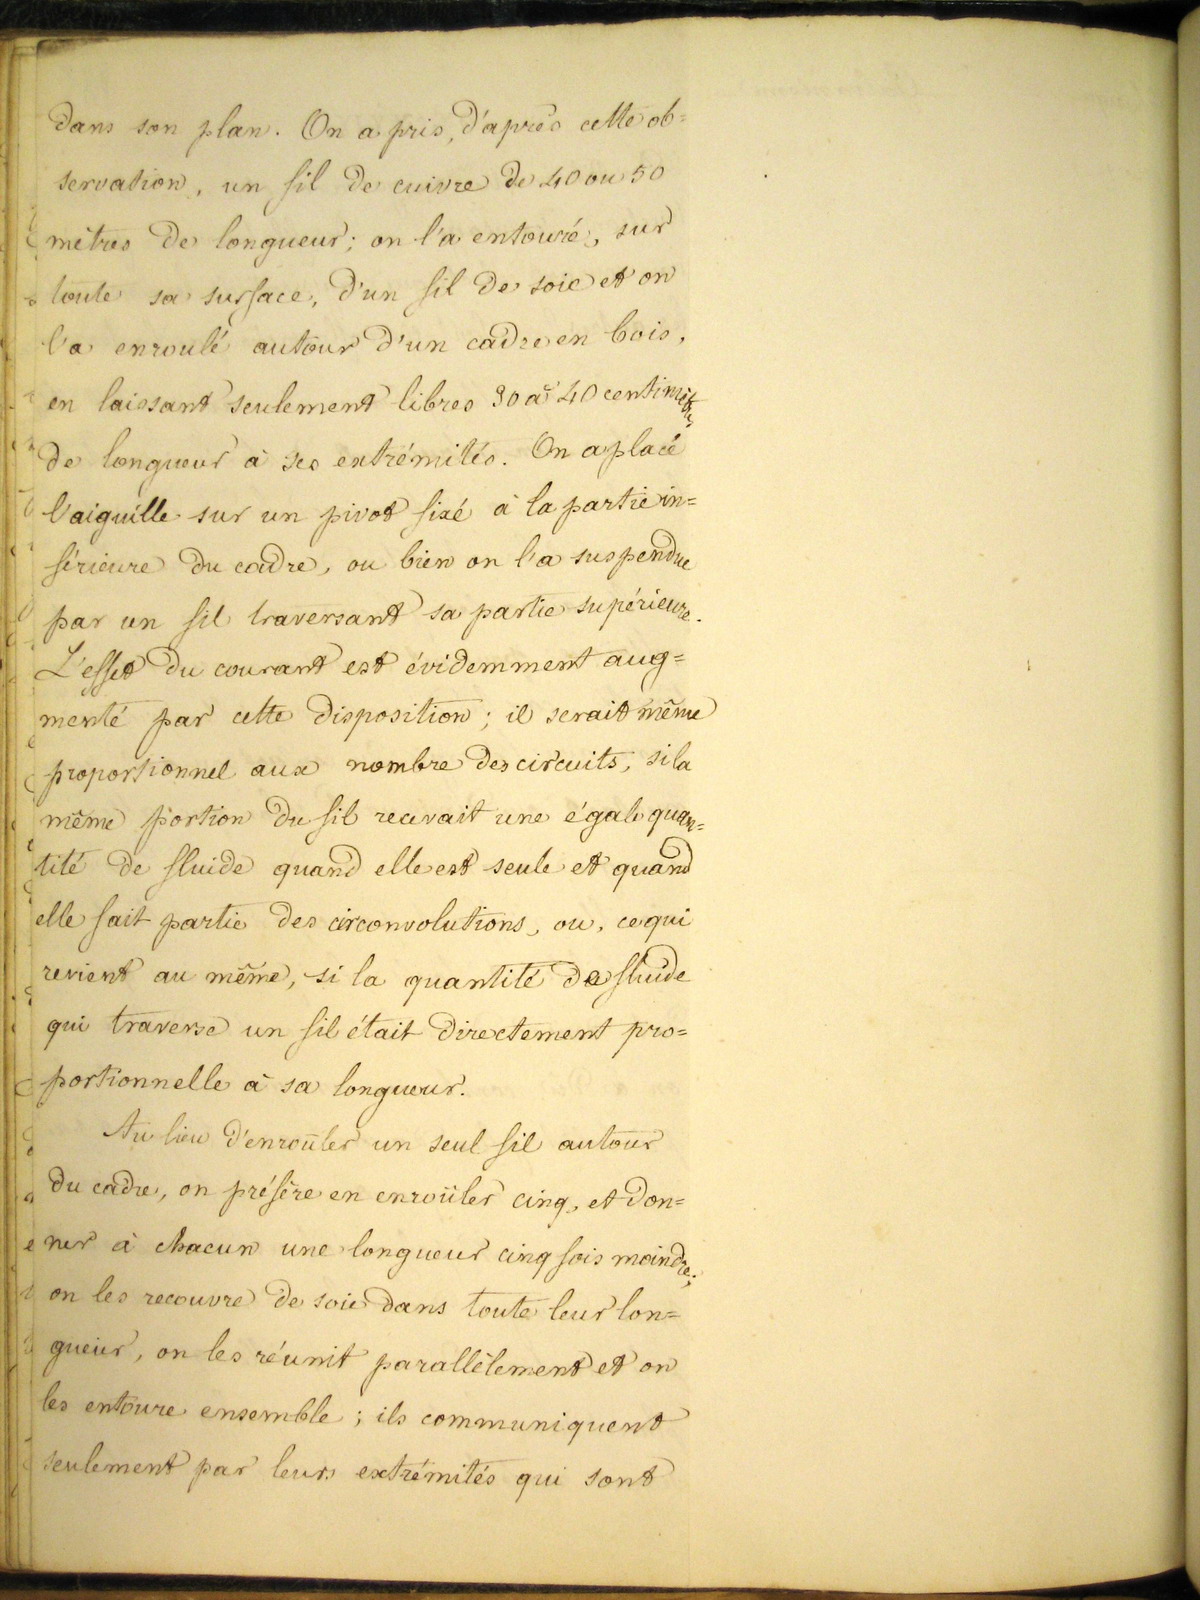 dans son plan. On a pris, d'après cette ob=
servation, un fil de cuivre de 40 ou 50
mètres de longueur; on l'a entouré, sur
toute sa surface, d'un fil de soie et on
l'a enroulé autour d'un cadre en bois,
en laissant seulement libres 30 à 40 centimètres
de longueur à ses extrémités. On a placé
l'aiguille sur un pivot fixé à la partie in=
férieure du cadre, ou bien on l'a suspendue
par un fil traversant sa partie supérieure.
L'effet du courant est évidemment aug=
menté par cette disposition; il serait même
proportionnel aux nombre des circuits, si la
même portion du fil recevait une égale quan=
tité de fluide quand elle est seule et quand
elle fait partie des circonvolutions, ou, ce qui
revient au même, si la quantité de fluide
qui traverse un fil était directement pro=
portionnelle à sa longueur.
Au lieu d'enrouler un seul fil autour
du cadre, on préfère en enrouler cinq, et don=
ner à chacun une longueur cinq fois moindre;
on les recouvre de soie dans toute leur lon=
gueur, on les réunit parallèlement et on
les entoure ensemble; ils communiquent
seulement par leurs extrémités qui sont